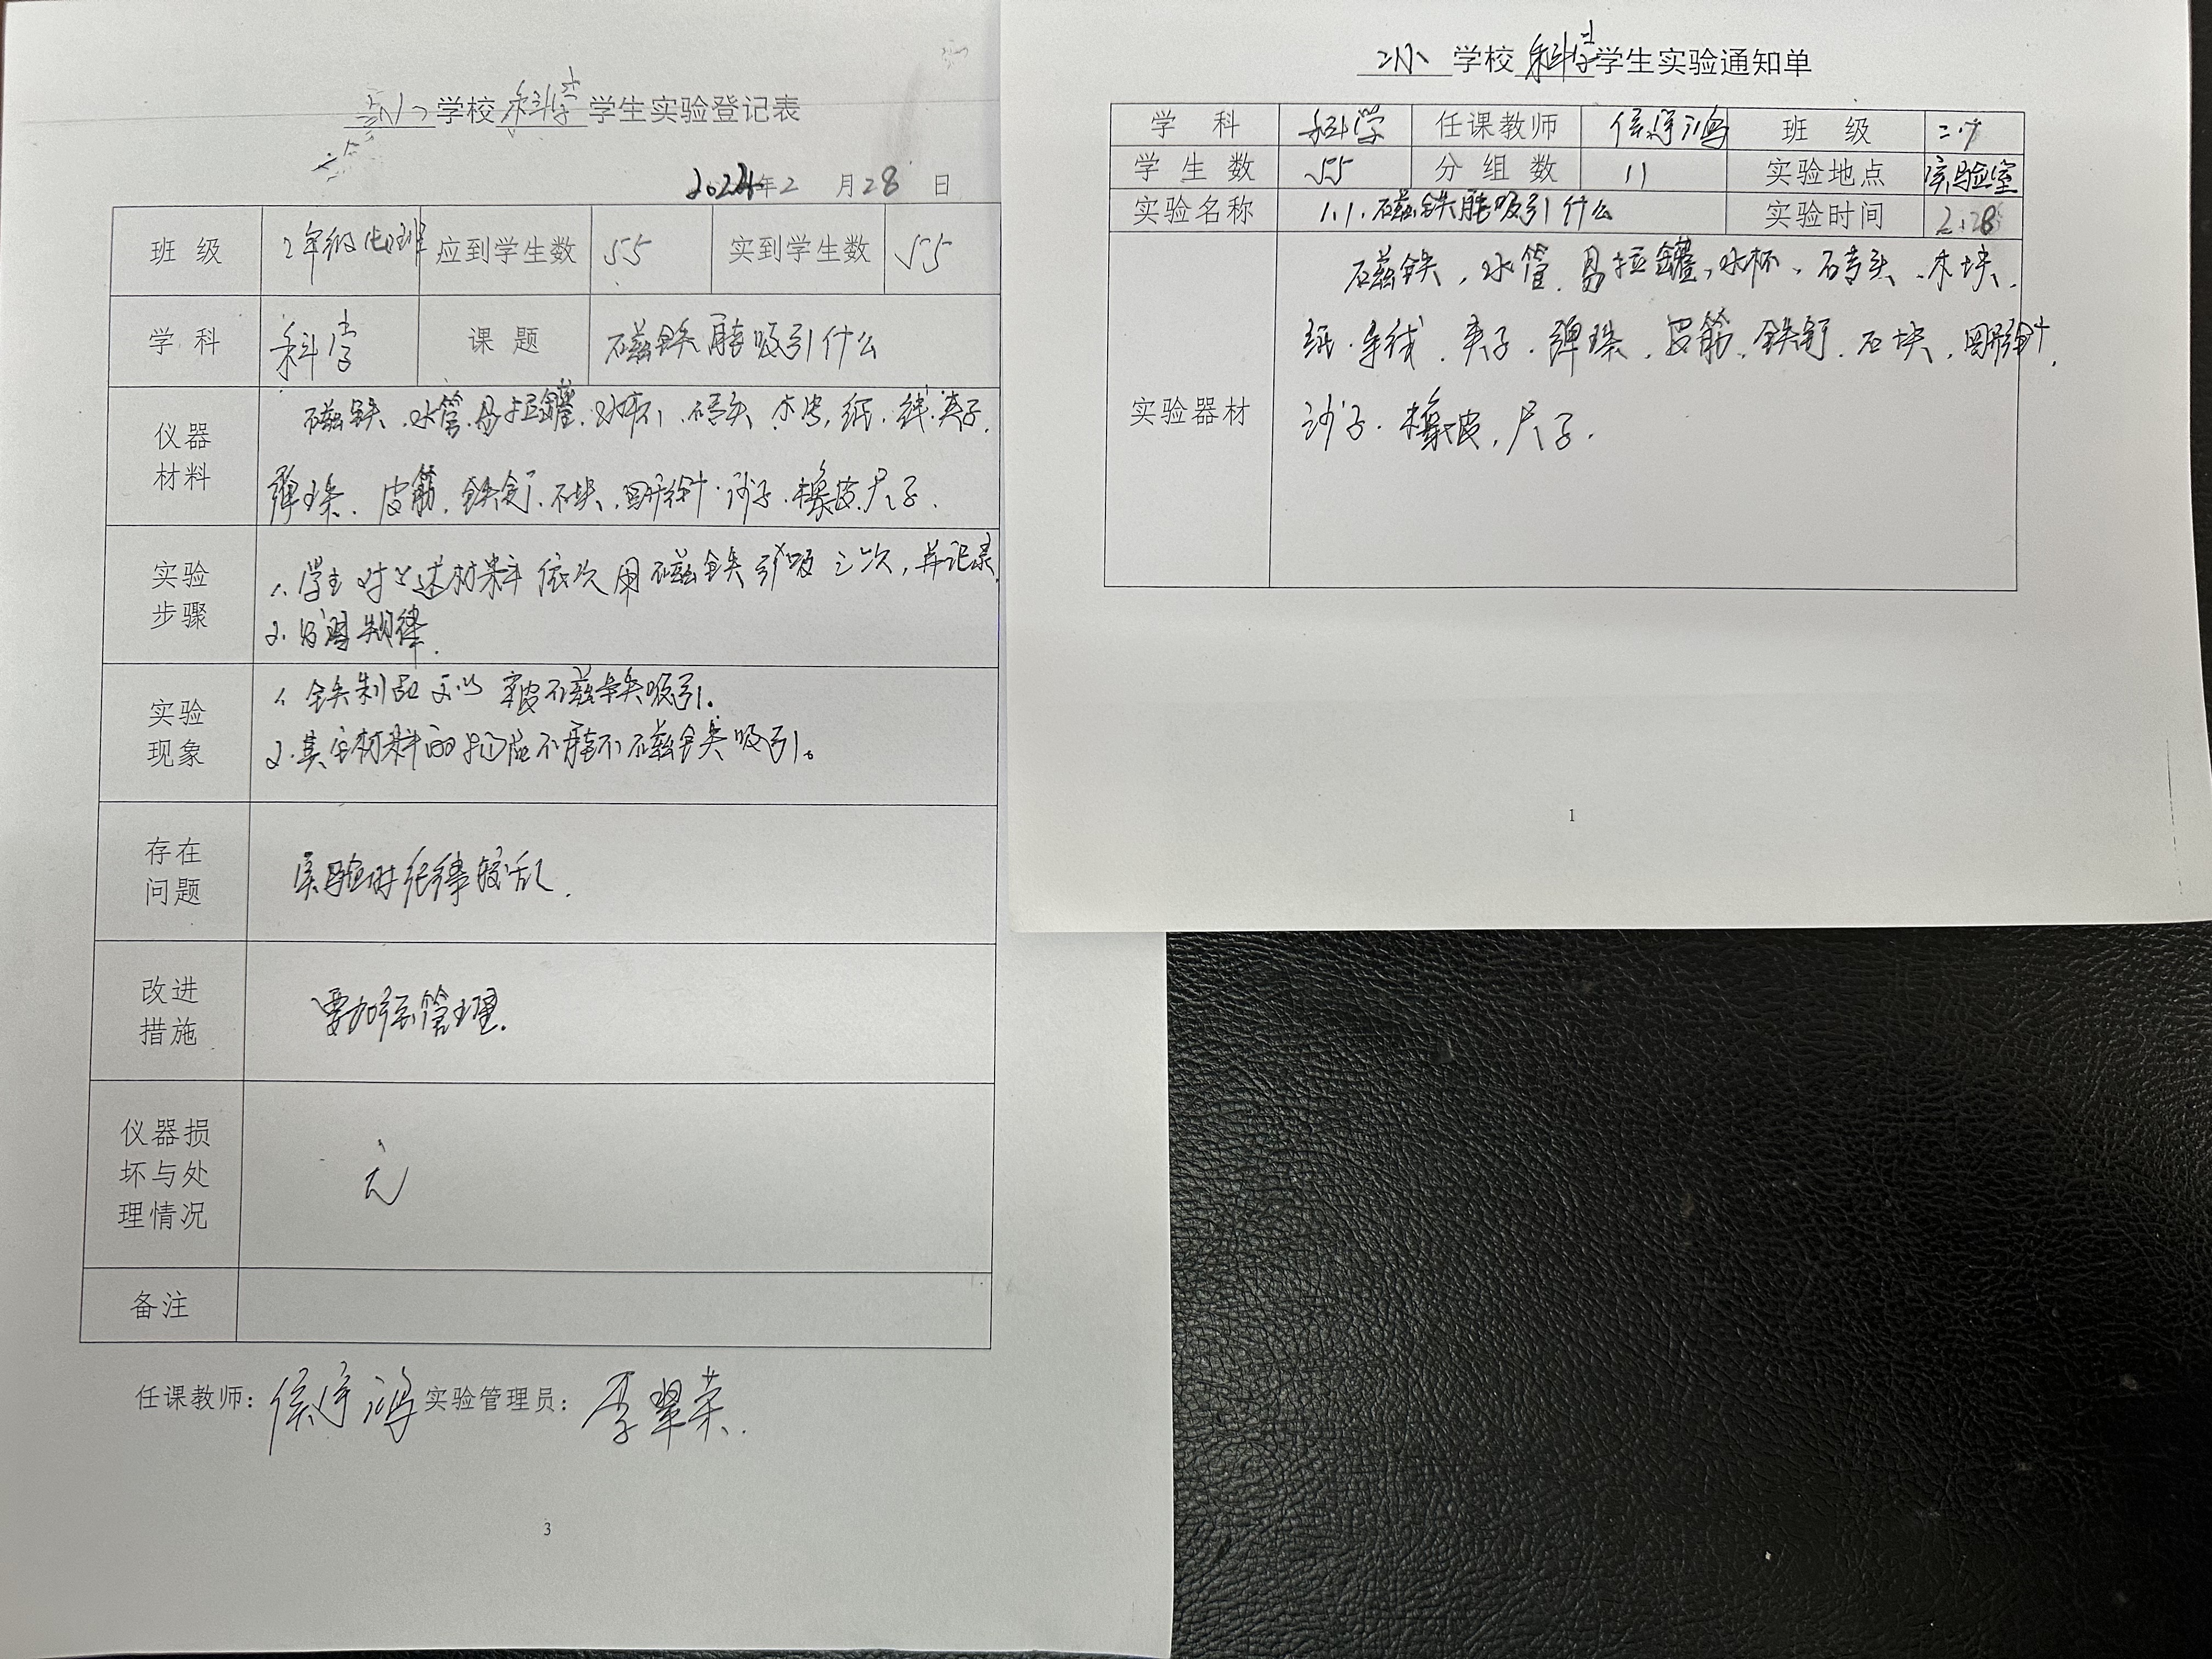 学校 科学 学生实验登记表
2024年2月28日
班级 2年级七班 应到学生数 55 实到学生数 55
学科 科学 课题 磁铁能吸引什么
仪器材料
磁铁、水管、易拉罐、水杯、砖头、木块、纸、线、夹子、
弹珠、皮筋、铁钉、石块、回形针、沙子、橡皮、尺子.
实验步骤
1. 学生对上述材料依次用磁铁引吸三次,并记录.
2. 规律.
实验现象
1. 铁制品可以被磁铁吸引.
2. 其它材料的物应不能不磁铁吸引。
存在问题
实验时纪律较乱.
改进措施
要加强管理.
仪器损坏与处理情况
无
备注
任课教师: 侯宇鸿 实验管理员: 李翠荣.
3
二小 学校 科学 学生实验通知单
学科 科学 任课教师 侯宇鸿 班级 二.7
学生数 55 分组数 11 实验地点 实验室
实验名称 1.1.磁铁能吸引什么 实验时间 2.28
实验器材
磁铁,水管.易拉罐,水杯、砖头.木块.
纸.导线.夹子.弹珠.皮筋.铁钉.石块.回形针.
沙子.橡皮,尺子.
1